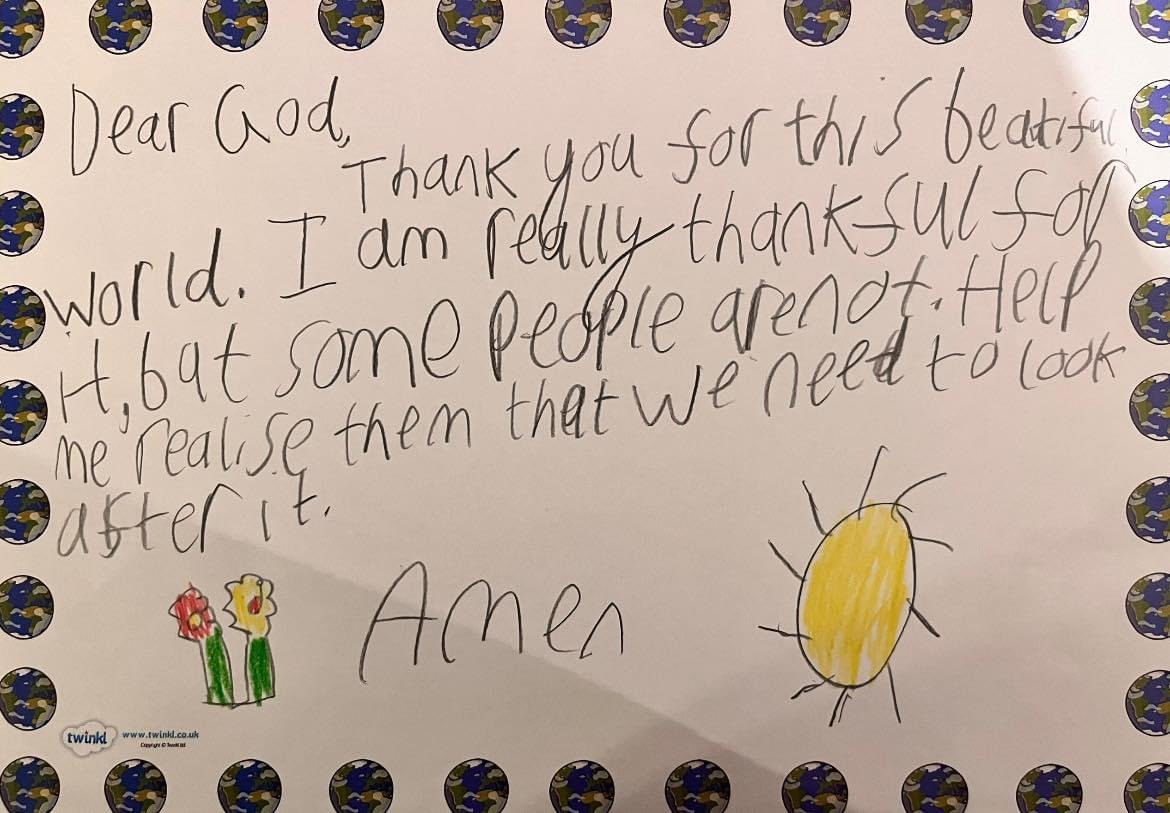 Dear God,
Thank you for this beatiful
world. I am really thankful for
it, but some people arenot. Help
me realise them that we need to look
after it.
Amen
twinkl www.twinkl.co.uk
Copyright © Twinkl Ltd